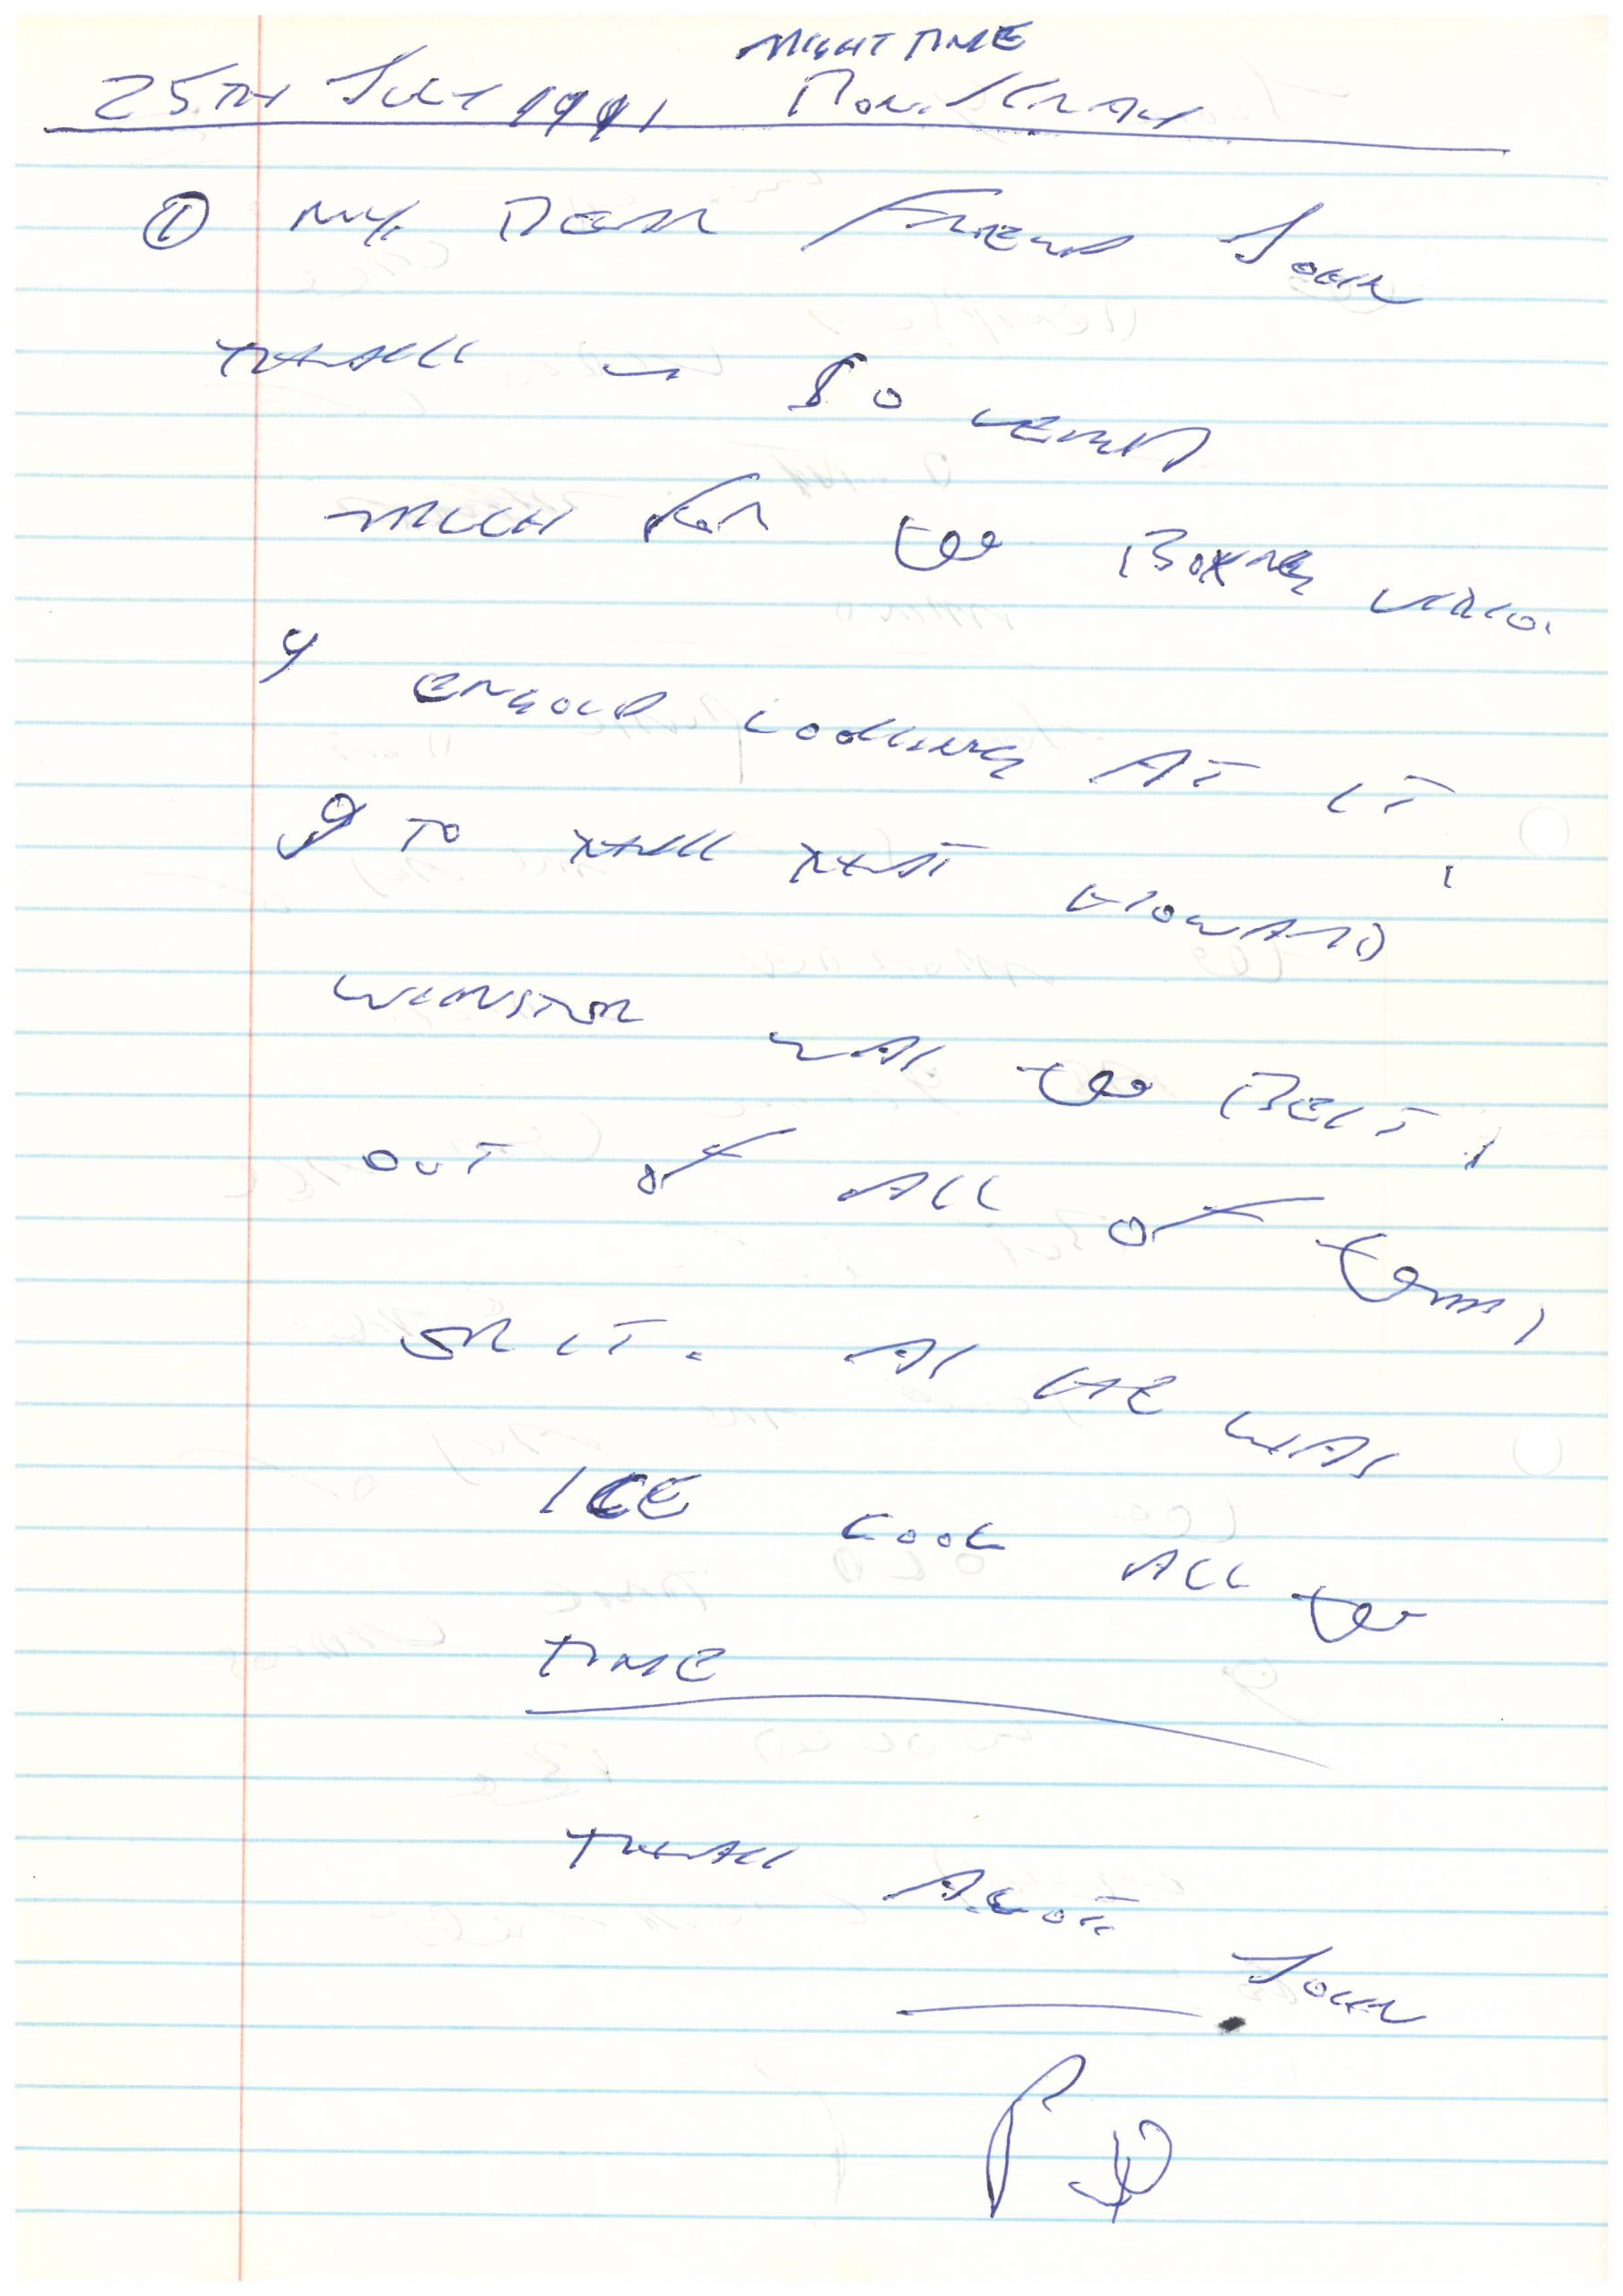 NIGHT TIME
25TH JULY 1991
① MY. DEAR FRIEND JOHN
THANK U SO VERY
MUCH FOR the BOXING VIDEO.
I ENJOYED LOOKING AT IT
I TO THINK THAT HOWARD
WINSTON WAS the BEST,
OUT OF ALL OF them,
ON IT. AS HE WAS
ICE COOL ALL the
TIME
THANKS ALOT.
JOHN